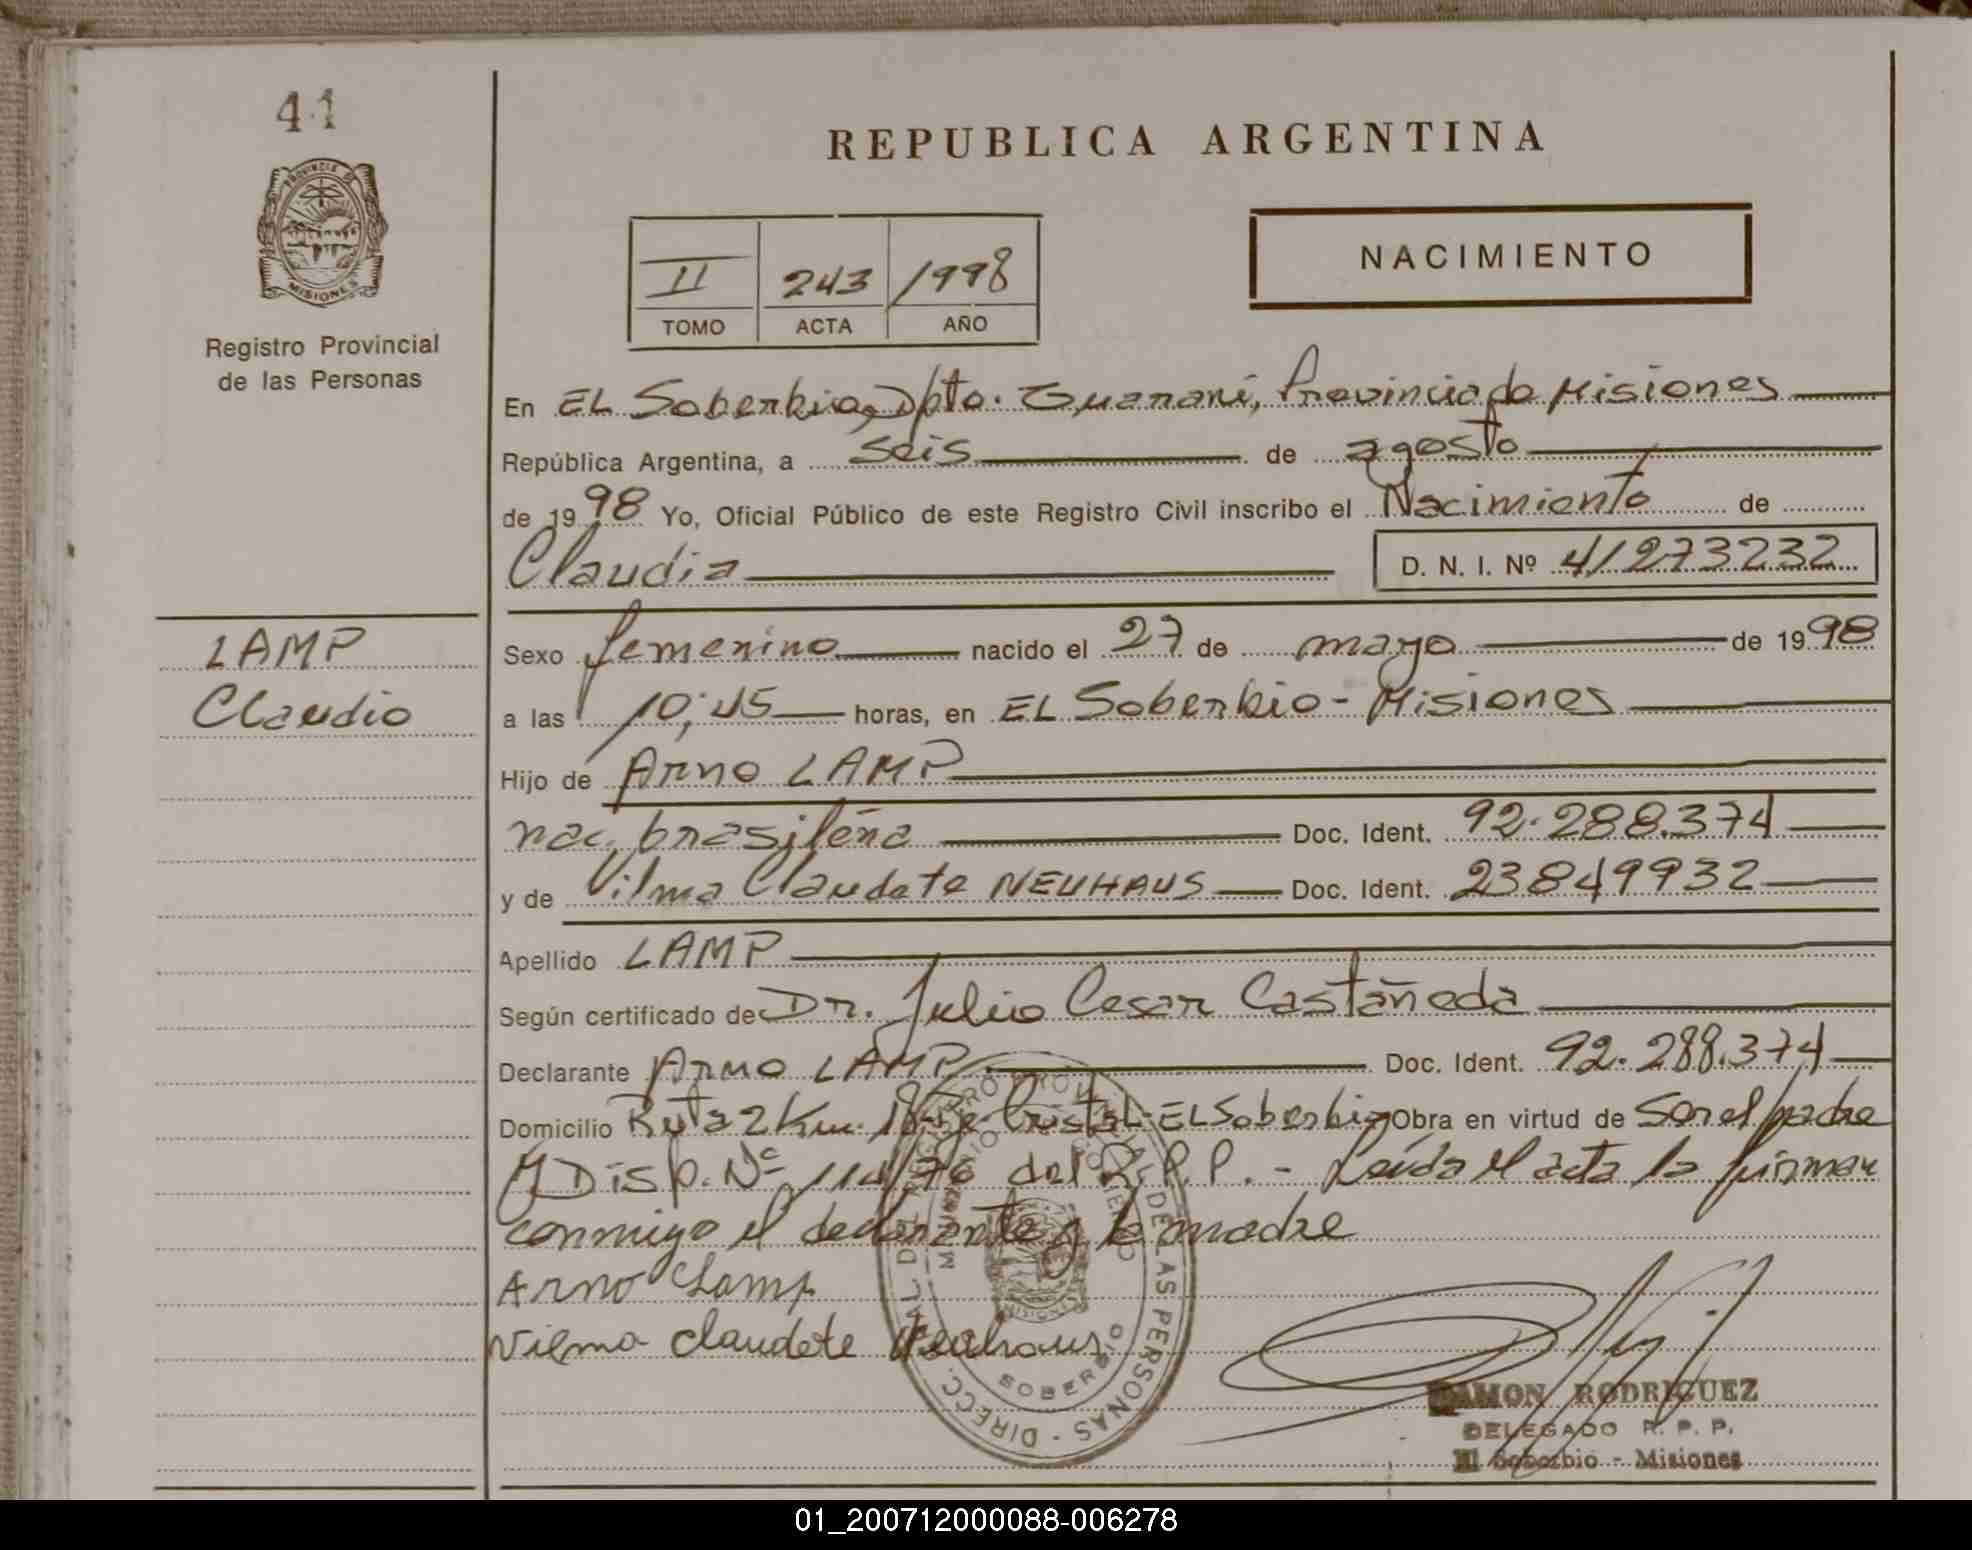 41
PROVINCIA DE
MISIONES
Registro Provincial
de las Personas
LAMP
Claudio
REPUBLICA ARGENTINA
II 243 1998
TOMO ACTA AÑO
NACIMIENTO
En EL Soberbio, Dpto. Guaraní, Provincia de Misiones
República Argentina, a seis de agosto
de 1998 Yo, Oficial Público de este Registro Civil inscribo el Nacimiento de
Claudia D. N. I. Nº 41273232
Sexo femenino nacido el 27 de mayo de 1998
a las 10;45 horas, en EL Soberbio - Misiones
Hijo de Arno LAMP
nac. brasileña Doc. Ident. 92.288.374
y de Vilma Claudete NEUHAUS Doc. Ident. 23849932
Apellido LAMP
Según certificado de Dr. Julio Cesar Castañeda
Declarante Arno LAMP Doc. Ident. 92.288.374
Domicilio Ruta 2 Km. EL Soberbio Obra en virtud de Ser el padre
y Disp. Nº 114/76 del R.P.P. - Leída el acta la firman
conmigo el declarante y la madre
Arno Lamp
Vilma Claudete Neuhaus
DIRECC. DE LAS PERSONAS
SOBERBIO
MISIONES
RAMON RODRIGUEZ
DELEGADO R. P. P.
El Soberbio - Misiones
01_200712000088-006278